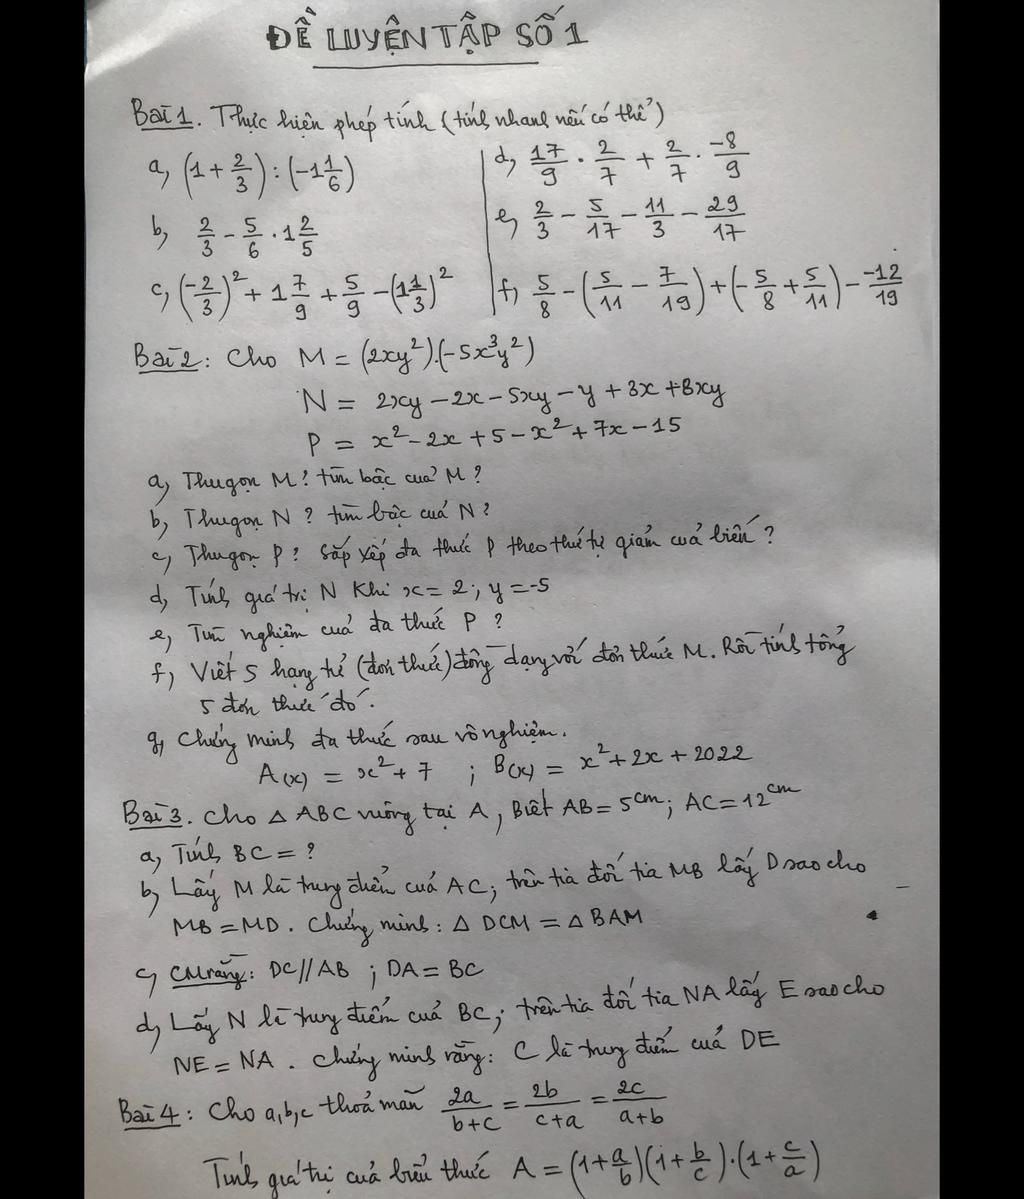 ĐỀ LUYỆN TẬP SỐ 1
Bài 1. Thực hiện phép tính (tính nhanh nếu có thể)
a, (1 + 2/3) : (-1 1/6)
b, 2/3 - 5/6 . 1 2/5
c, (-2/3)² + 1 7/9 + 5/9 - (1 1/3)²
d, 17/9 . 2/7 + 2/7 . -8/9
e, 2/3 - 5/17 - 11/3 - 29/17
f, 5/8 - (5/11 - 7/19) + (-5/8 + 5/11) - -12/19
Bài 2: Cho M = (2xy²).(-5x³y²)
N = 2xy - 2x - 5xy - y + 3x + 8xy
P = x² - 2x + 5 - x² + 7x - 15
a, Thu gọn M? tìm bậc của M?
b, Thu gọn N? tìm bậc của N?
c, Thu gọn P? Sắp xếp đa thức P theo thứ tự giảm của biến?
d, Tính giá trị N Khi x = 2; y = -5
e, Tìm nghiệm của đa thức P?
f, Viết 5 hạng tử (đơn thức) đồng dạng với đơn thức M. Rồi tính tổng
5 đơn thức đó.
g, Chứng minh đa thức sau vô nghiệm.
A(x) = x² + 7 ; B(x) = x² + 2x + 2022
Bài 3. Cho △ ABC vuông tại A, Biết AB = 5cm; AC = 12cm
a, Tính BC = ?
b, Lấy M là trung điểm của AC; trên tia đối tia MB lấy D sao cho
MB = MD. Chứng minh: △ DCM = △ BAM
c, CM rằng: DC // AB ; DA = BC
d, Lấy N là trung điểm của BC; trên tia đối tia NA lấy E sao cho
NE = NA. Chứng minh rằng: C là trung điểm của DE
Bài 4: Cho a,b,c thoả mãn 2a/(b+c) = 2b/(c+a) = 2c/(a+b)
Tính giá trị của biểu thức A = (1 + a/b)(1 + b/c).(1 + c/a)